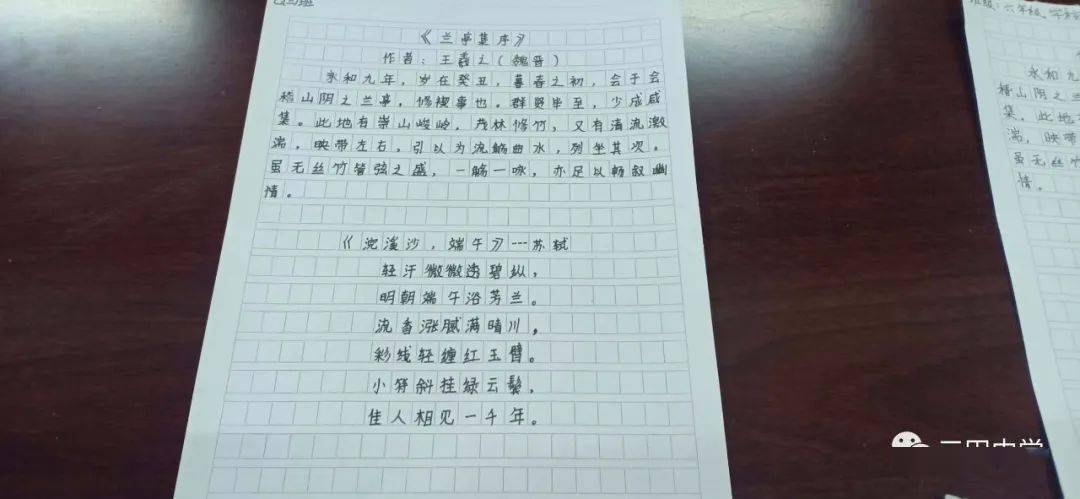 《兰亭集序》
作者：王羲之（魏晋）
永和九年，岁在癸丑，暮春之初，会于会
稽山阴之兰亭，修禊事也。群贤毕至，少成咸
集。此地有崇山峻岭，茂林修竹，又有清流激
湍，映带左右，引以为流觞曲水，列坐其次。
虽无丝竹管弦之盛，一觞一咏，亦足以畅叙幽
情。
《浣溪沙，端午》---苏轼
轻汗微微透碧纨，
明朝端午浴芳兰。
流香涨腻满晴川，
彩线轻缠红玉臂。
小符斜挂绿云鬓，
佳人相见一千年。
班级：六年级
永和九
稽山阴之兰
集，此地
湍，映带
虽无丝竹
情。